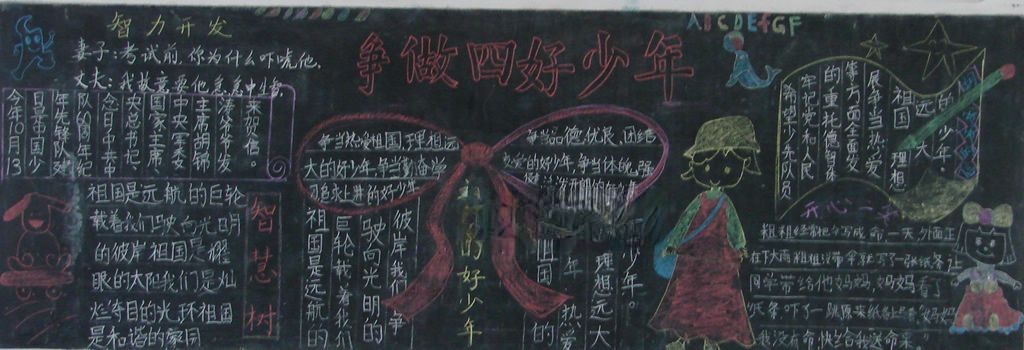 智力开发
妻子:考试前,你为什么吓唬他,
丈夫:我故意要他急
争做四好少年
ABCDEFGF
今年10月13
日是中国少
年先锋队建
队60周年纪
念日,中共中
央总书记、
国家主席、
中央军委
主席胡锦
涛爷爷发
来贺信。
祖国是远航的巨轮
载着我们驶向光明
的彼岸祖国是耀
眼的太阳我们是灿
烂夺目的光环祖国
是和谐的家园
智慧树
争当热爱祖国,理想远
大的好少年,争当勤奋学
习
争当品德优良,团结
友爱的好少年,争当体魄强
祖国的好少年
彼岸我们争
驶向光明的
巨轮载着我们
祖国是远航的
好少年。
理想远大
热爱
祖国的
展争当热爱
祖国
理想
远大
的
少年。
等方面全面发
的重托德智体
牢记党和人民
希望少年先锋队员
开心一
粗粗经常把伞写成命,一天外面正
在下大雨粗粗没带伞就写了一张纸条让
同学带给他妈妈,妈妈看了
大条吓了一跳原来纸条上
我没有命快给我送命来。